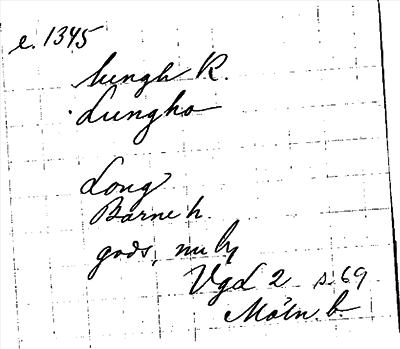 e. 1345
lungh R.
Lungho
Long
Barne h.
gods, nu by
Vgd 2 s. 69
Möln. b